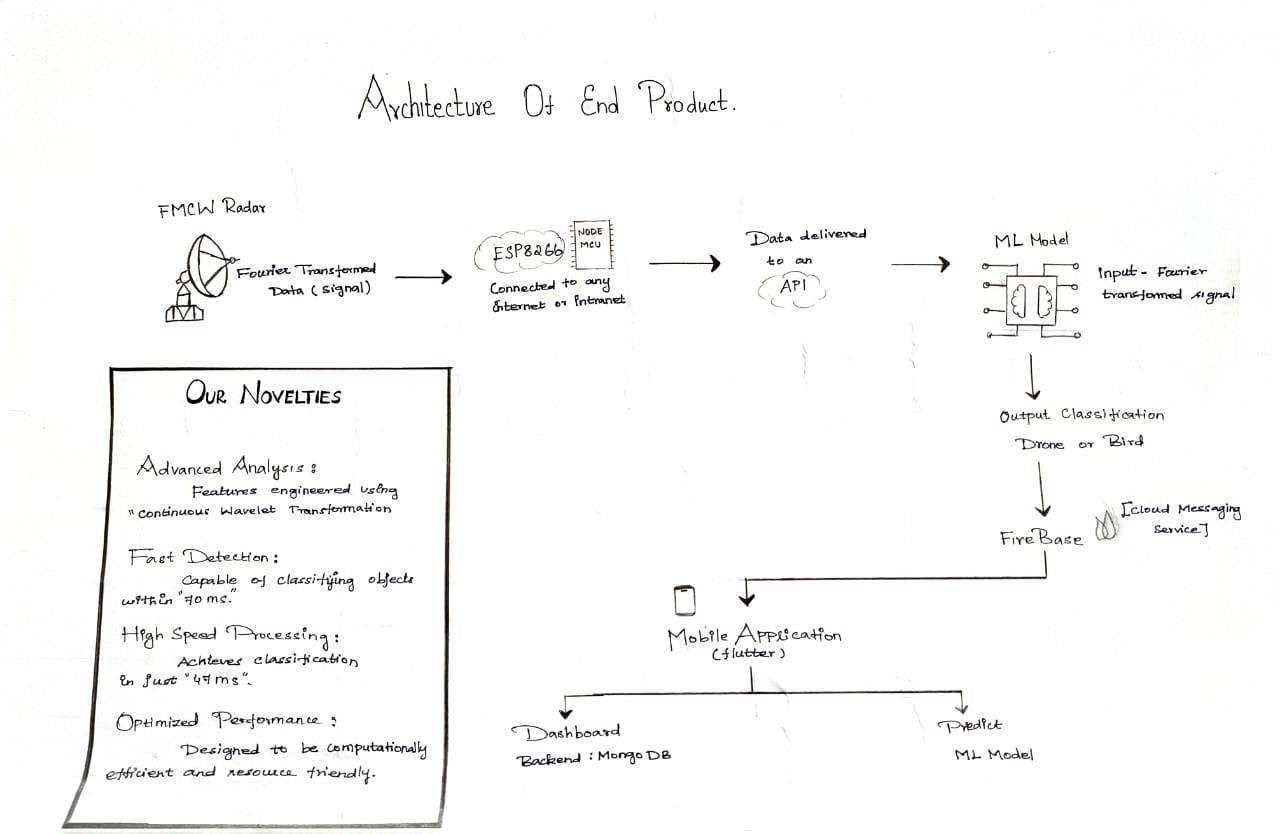 Architecture Of End Product.
FMCW Radar
Fourier Transformed
Data (signal)
ESP8266
NODE
MCU
Connected to any
Internet or Intranet
Data delivered
to an
API
ML Model
Input - Fourier
transformed signal
Output Classification
Drone or Bird
FireBase
[Cloud Messaging
Service]
Mobile Application
(flutter)
Dashboard
Backend : Mongo DB
Predict
ML Model
OUR NOVELTIES
Advanced Analysis :
Features engineered using
"Continuous Wavelet Transformation
Fast Detection :
Capable of classifying objects
within "70 ms."
High Speed Processing :
Achieves classification
in just "47ms".
Optimized Performance :
Designed to be computationally
efficient and resource friendly.